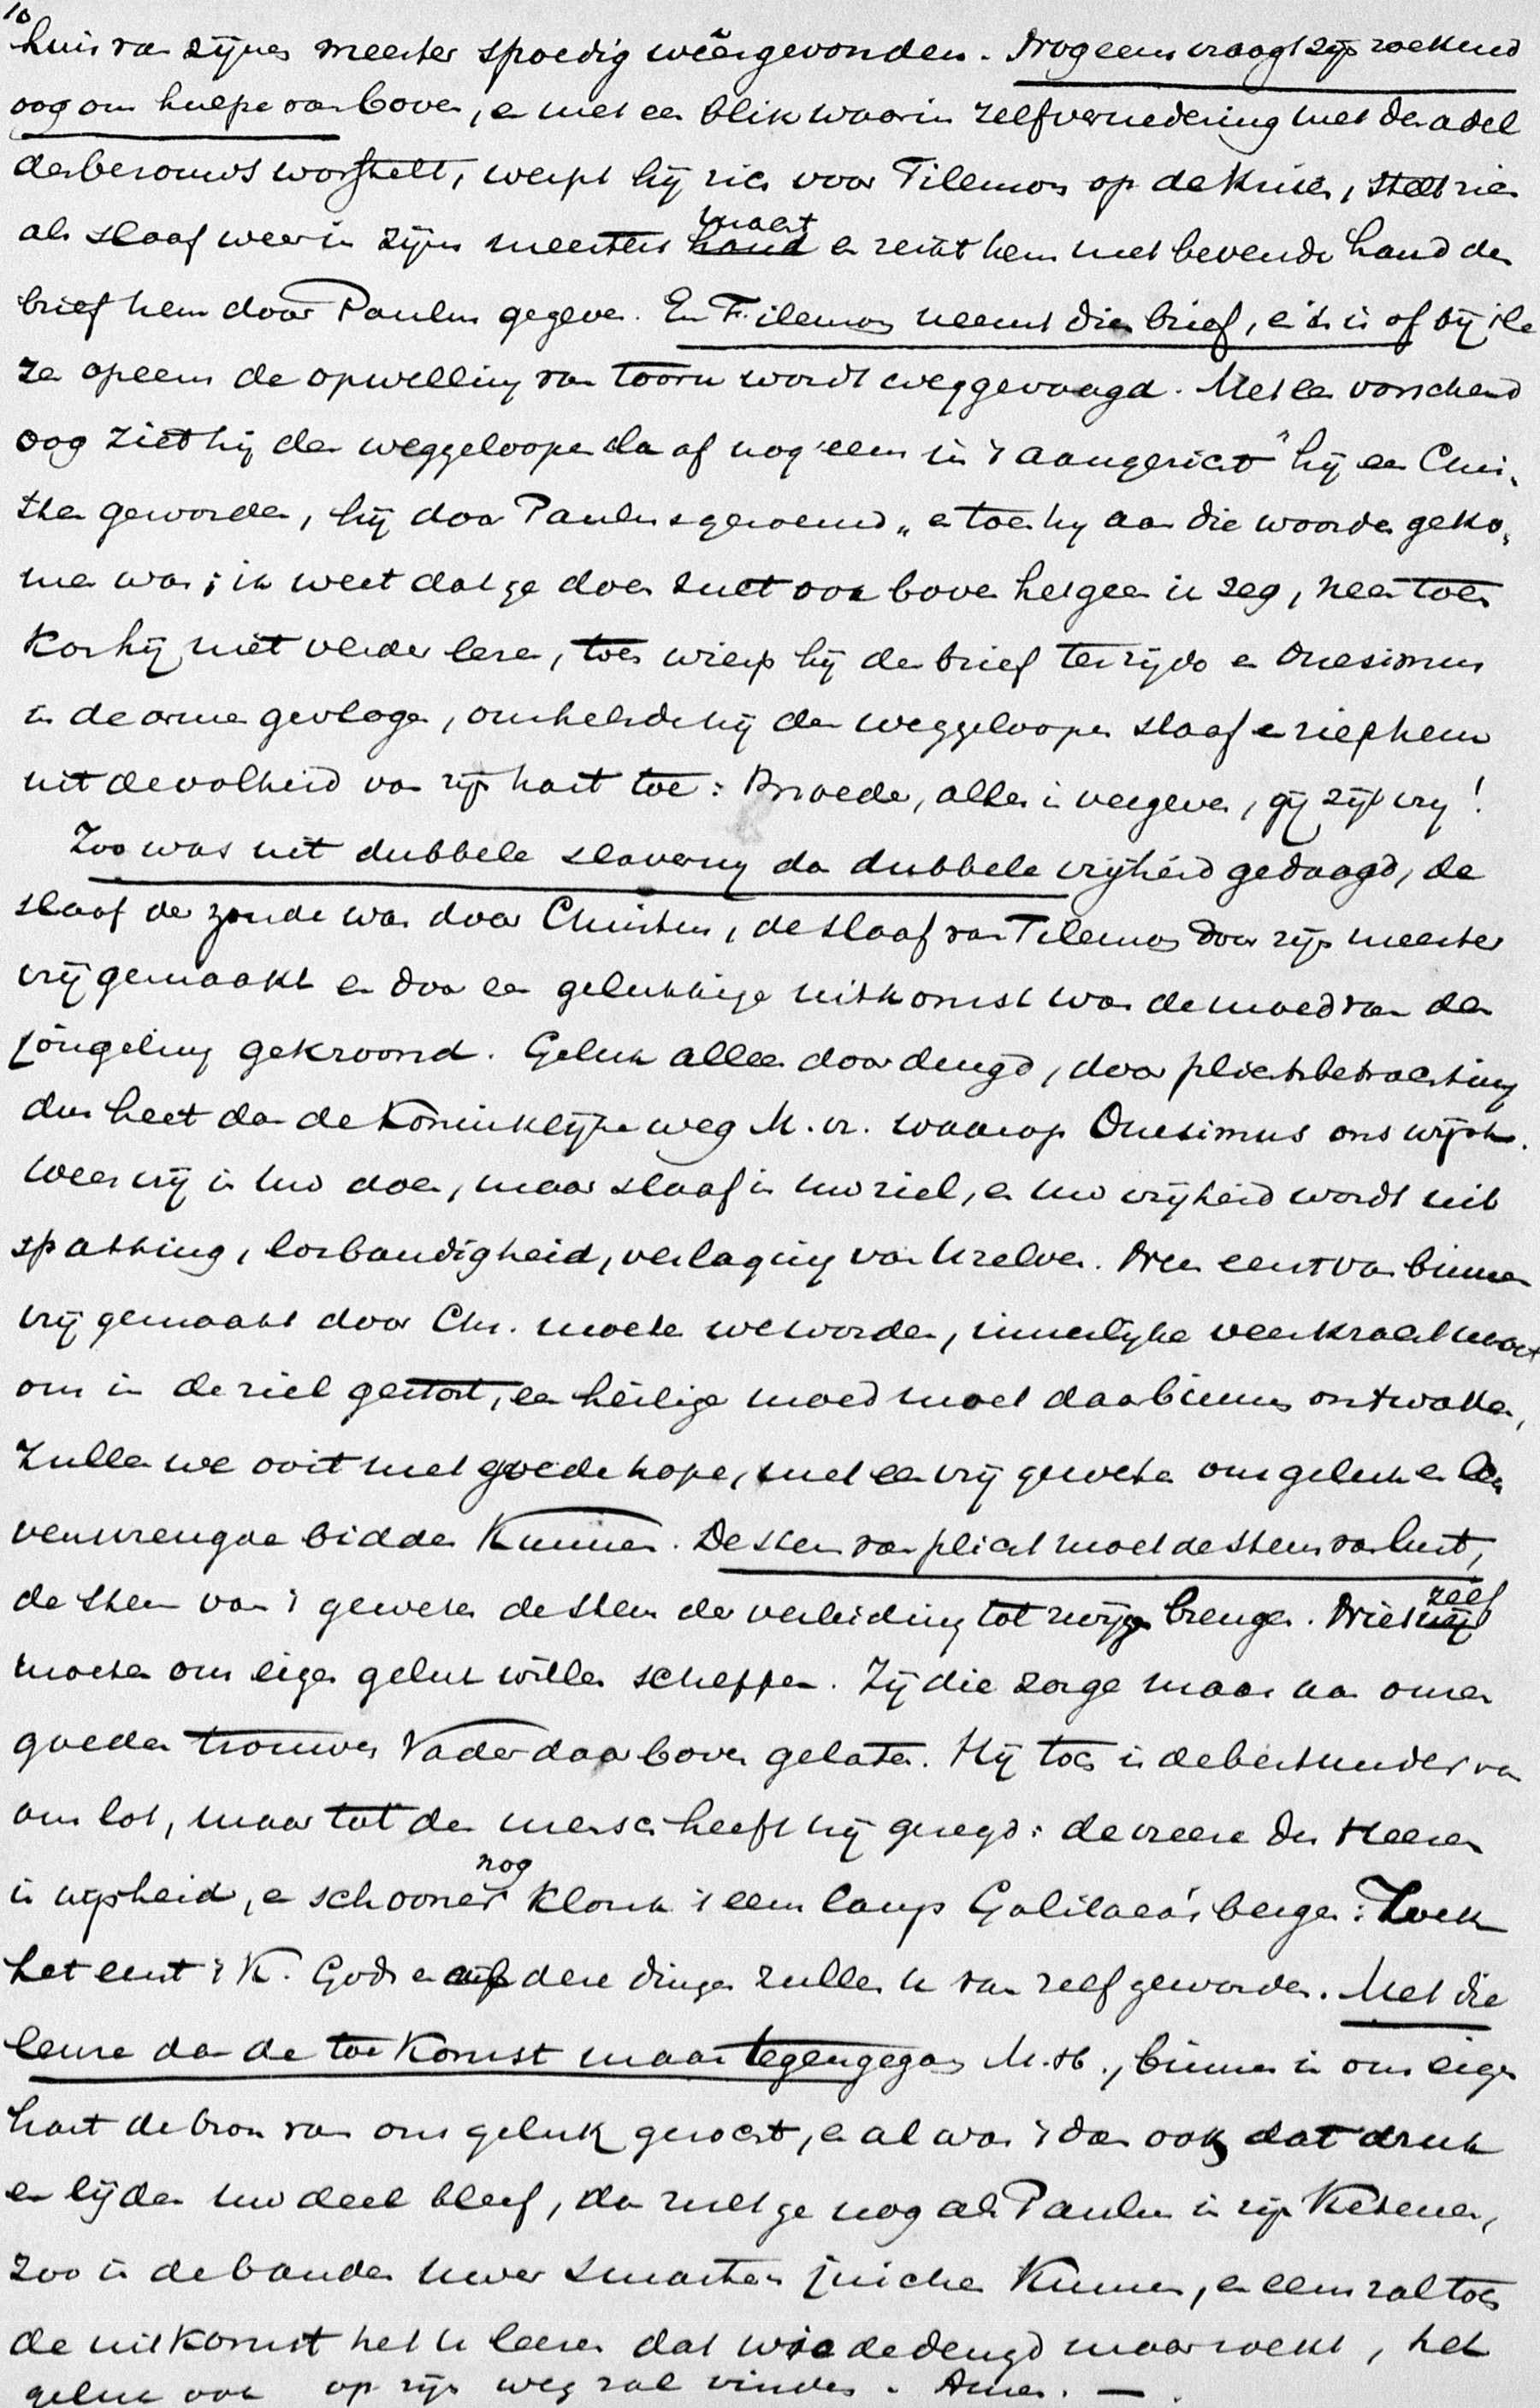 10
huis van zijnen meester spoedig weêrgevonden. Nog eens vraagt zijn zoekend
oog om hulpe van boven, en met een blik waarin zelfvernedering met den adel
des berouws worstelt, werpt hij zich voor Filemon op de knieën, stelt zich
als slaaf weer in zijns meesters macht en reikt hem met bevende hand den
brief hem door Paulus gegeven. En Filemon neemt dien brief, en 't is of bij 't le
zen opeens de opwelling van toorn wordt weggevaagd. Met een vorschend
oog ziet hij den weggeloopen slaaf nog eens in 't aangezicht "hij een Chris-
ten geworden, hij door Paulus gezoend" en toen hij aan die woorden geko-
men was: ik weet dat ge doen zult ook boven hetgeen ik zeg, neen toen
kon hij niet verder lezen, toen wierp hij den brief terzijde en Onesimus
in de armen gevlogen, omhelsde hij den weggeloopen slaaf en riep hem
uit de volheid van zijn hart toe: Broeder, alles is vergeven, gij zijt vrij!
Zoo was uit dubbele slaverny de dubbele vrijheid gedaagd, de
slaaf der zonde was door Christus, de slaaf van Filemon door zijn meester
vrijgemaakt en door een gelukkige uitkomst was de moed van den
jongeling gekroond. Geluk alleen door deugd, door plichtsbetrachting
dus heet dan de koninklijke weg M. vr. waarop Onesimus ons wijst.
Wees vrij in uw doen, maar slaaf in uw ziel, en uw vrijheid wordt uit
spatting, losbandigheid, verlaging van Uzelven. Neen eerst van binnen
vrij gemaakt door Chr. moeten we worden, innerlijke veerkracht moet
ons in de ziel gestort, een heilige moed moet daarbinnen ontwaken,
zullen we ooit met goede hope, met een vrij geweten om geluk en le
vensvreugde bidden kunnen. De stem van plicht moet de stem van lust,
de stem van 't geweten de stem der verleiding tot zwijgen brengen. Niet zelf
moeten ons eigen geluk willen scheppen. Zij die zorge maar aan onzen
goeden trouwen Vader daarboven gelaten. Hij toch is de bestuurder van
ons lot, maar tot den mensch heeft hij gezegd: de vreeze des Heeren
is wijsheid, en schooner nog klonk 't eens langs Galilaea's bergen: Zoek
het eerst 't K. Gods en andere dingen zullen U van zelf geworden. Met die
leuze dan de toekomst maar tegengegaan M. H., binnen in ons eigen
hart de bron van ons geluk gezocht, en al was 't dan ook dat druk
en lijden uw deel bleef, dan zult ge nog als Paulus in zijn ketenen,
zoo in de banden uwer smarten juichen kunnen, en eens zal toch
de uitkomst het U leeren dat wie de deugd maar zoekt, het
geluk ook op zijn weg zal vinden. Amen. —